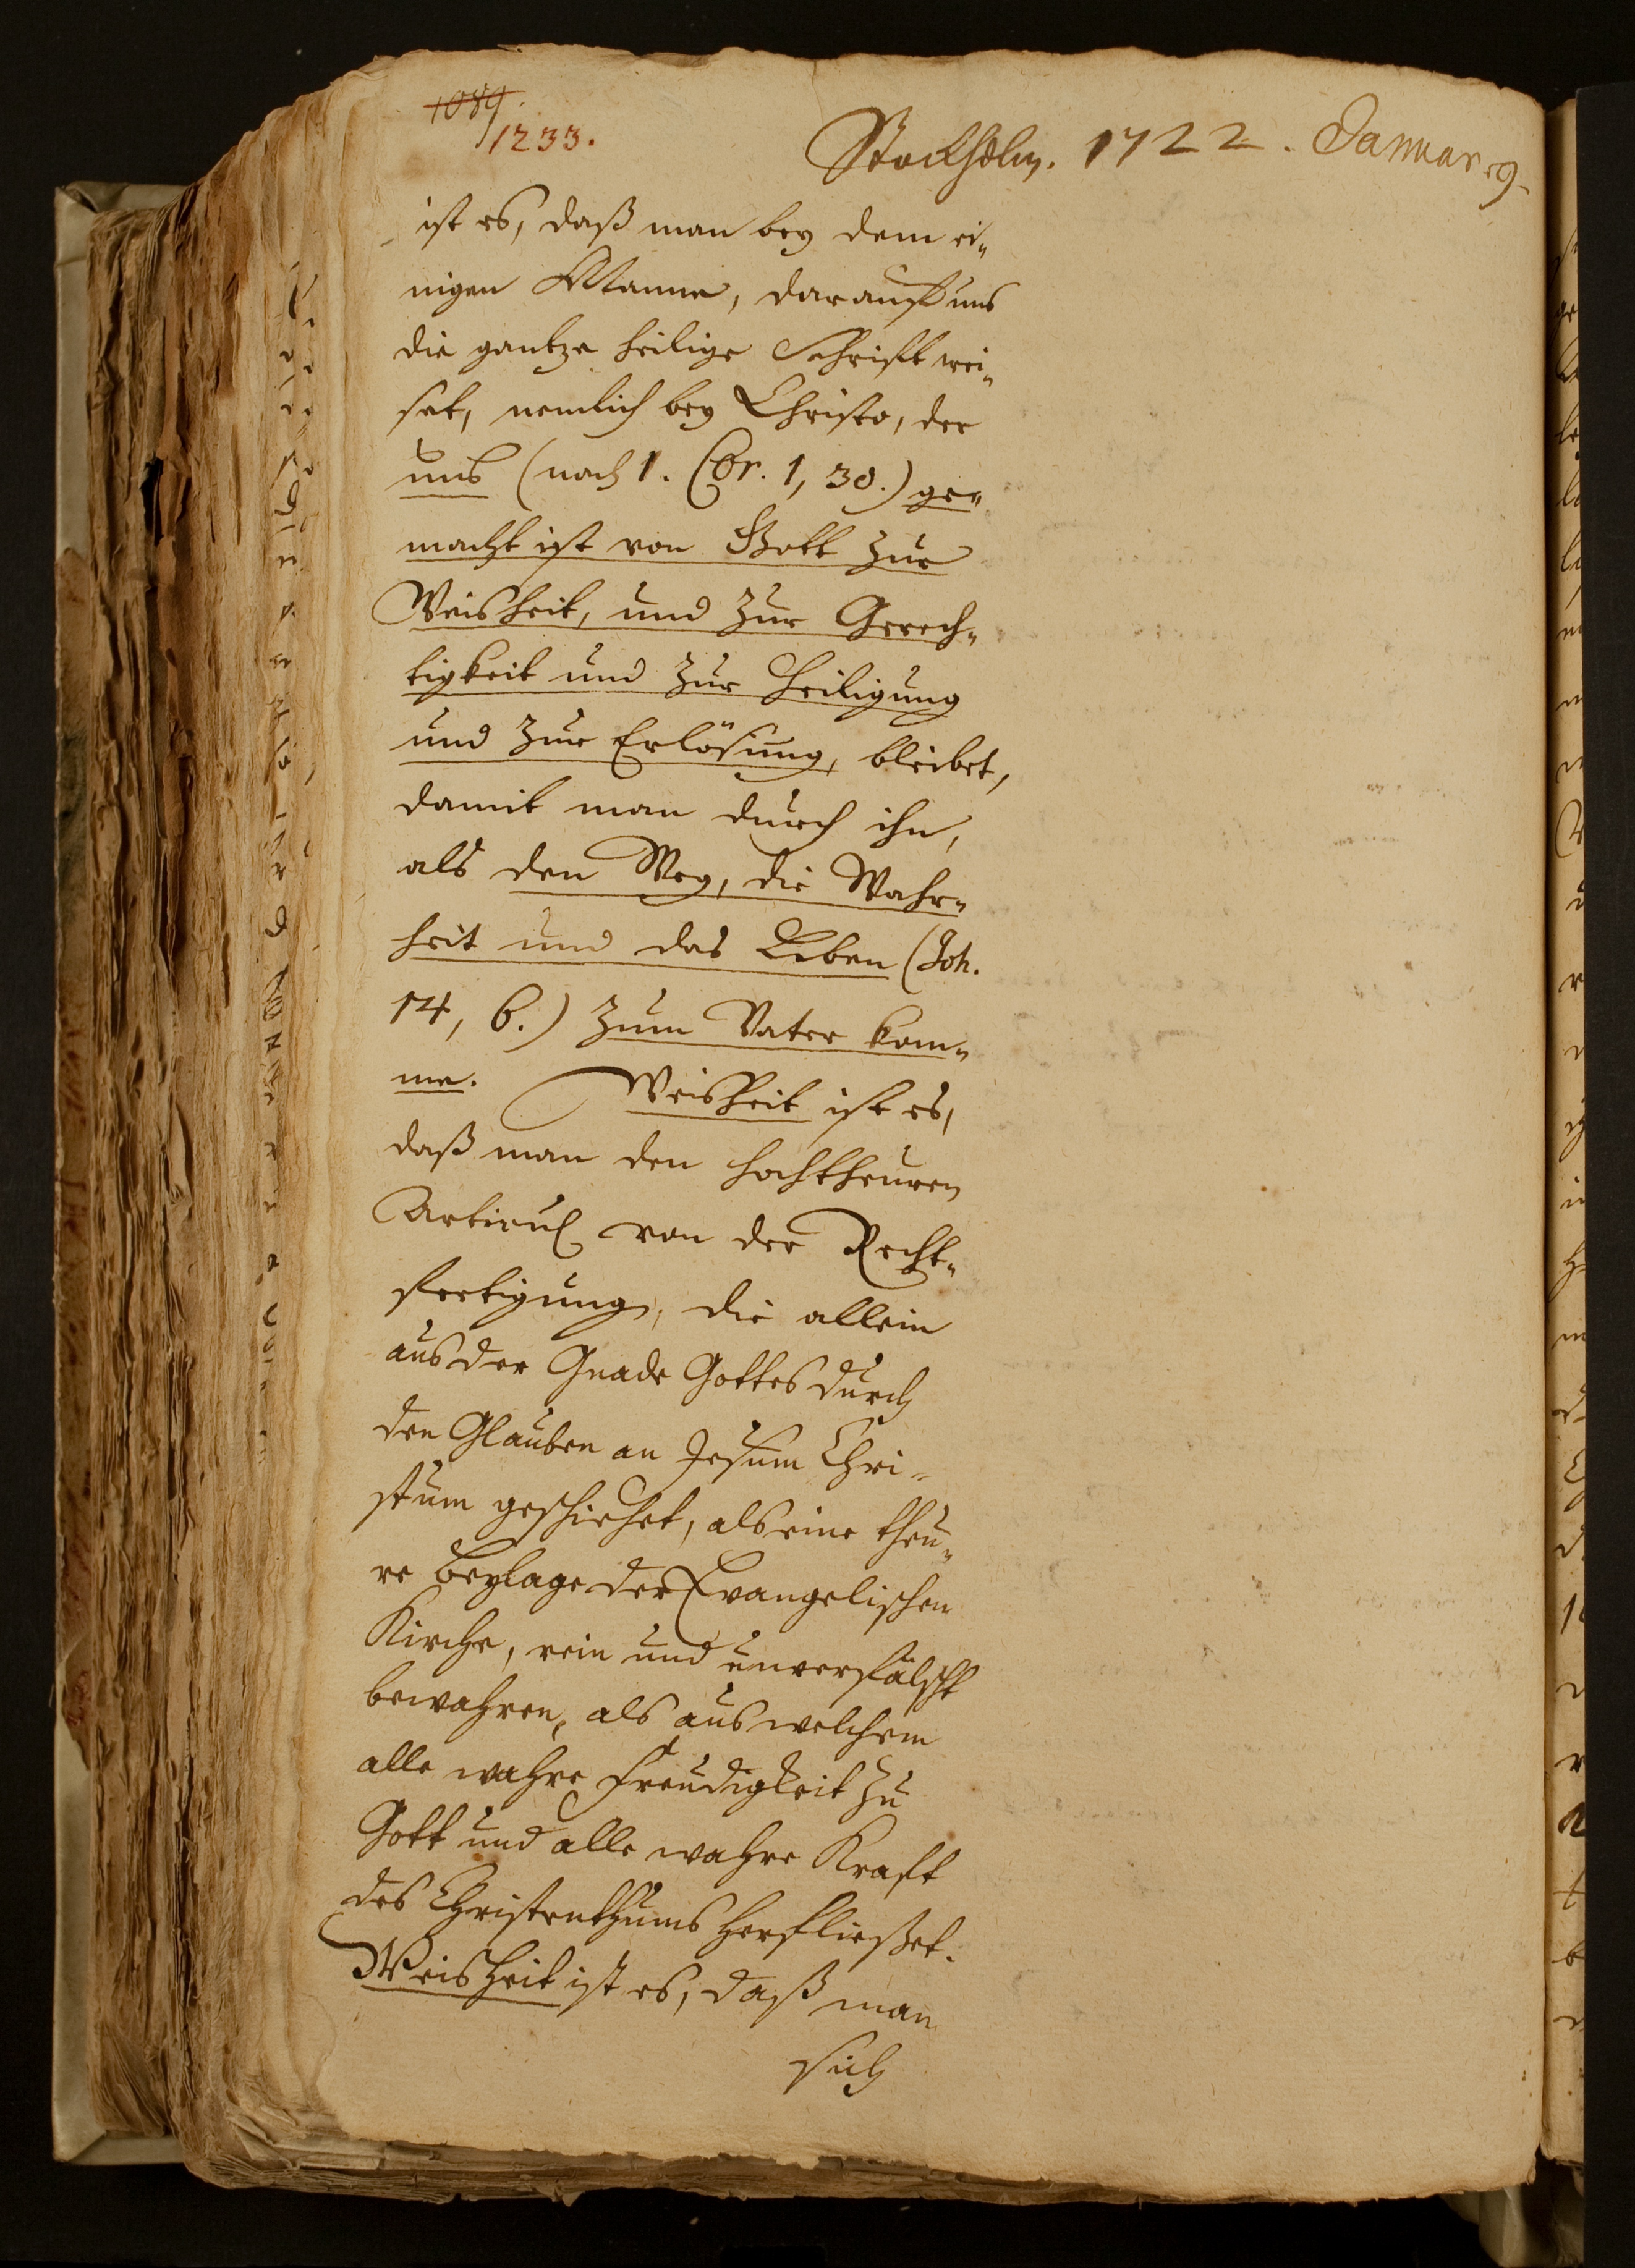 1089.
1233.
Stockholm. 1722. Januar. 9.
ist es, daß man bey dem ei-
nigen Manne, darauff uns
die gantze heilige Schrifft wei-
set, nemlich bey Christo, der
uns (nach 1. Cor. 1, 30.) ge-
macht ist von Gott zur
Weisheit, und zur Gerech-
tigkeit und zur Heiligung
und zur Erlösung, bleibet,
damit man durch ihn,
als den Weg, die Wahr-
heit und das Leben (Joh.
14, 6.) zum Vater kom-
me. Weisheit ist es,
daß man den hochtheuren
Articul von der Recht-
fertigung, die allein
aus der Gnade Gottes durch
den Glauben an Jesum Chri-
stum geschiehet, als eine theu-
re Beylage der Evangelischen
Kirche, rein und unverfälscht
bewahren, als aus welchem
alle wahre Freudigkeit zu
Gott und alle wahre Krafft
des Christenthums herfließet.
Weisheit ist es, daß man
sich